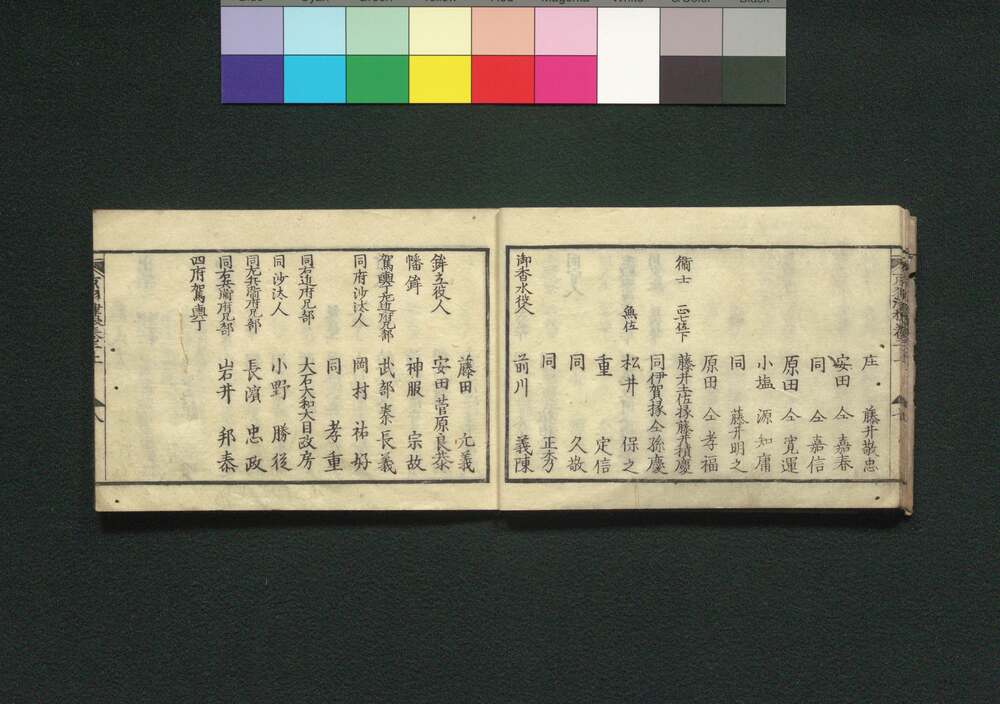 庄 藤井敬忠
安田 仝 嘉春
同 仝 嘉信
原田 仝 寛運
小塩 源知庸
同 藤井明之
原田 仝 孝福
衛士 正七位下 藤井土佐掾藤井積慶
同伊賀掾仝孫慶
無位 松井 保之
重 定信
同 久敬
同 正秀
御香水役人 前川 義陳
藤田 元義
鉾立役人 安田菅原良恭
幡鉾 神服 宗故
駕輿丁左近府兄部 武部秦長義
同府沙汰人 岡村 祐好
同 孝重
同右近府兄部 大石大和大目政房
同沙汰人 小野 勝従
同左兵衛府兄部 長濱 忠政
同右兵衛府兄部 岩井 邦泰
四府駕輿丁